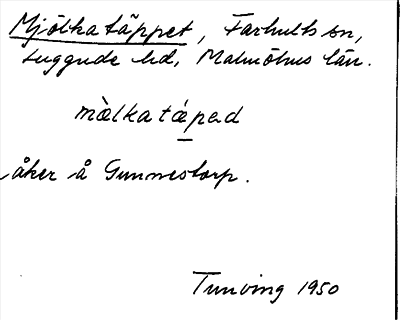 Mjölkatäppet, Farhults sn,
Luggude hd, Malmöhus län.
mὲlkatæpəd
åker å Gunnestorp.
Tunving 1950